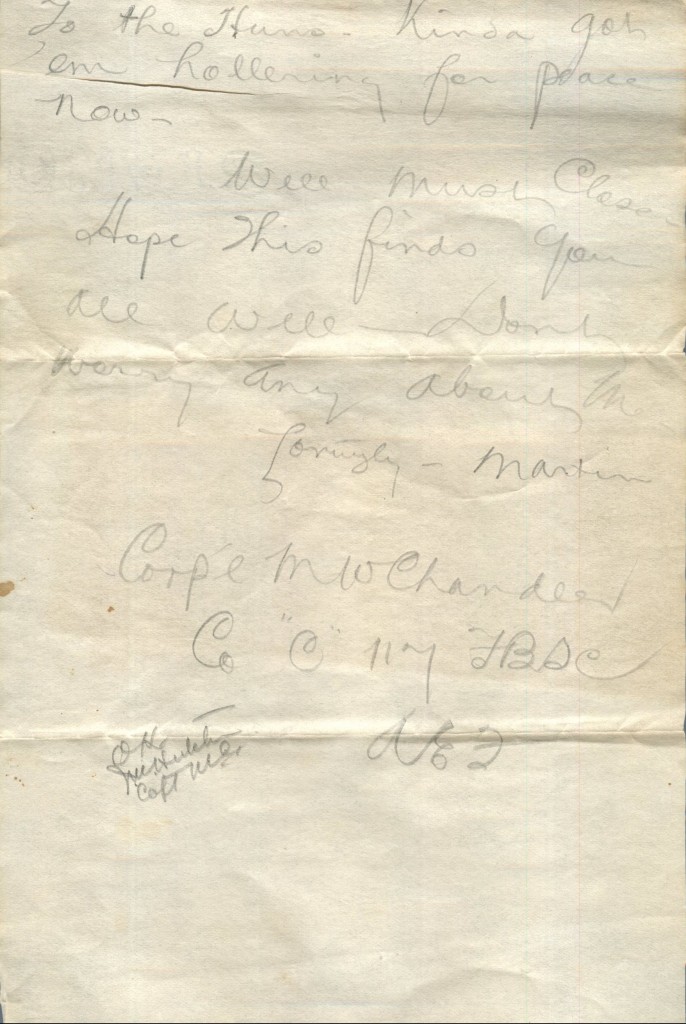 To the Huns - Kinda got
'em hollering for peace
now -
Well must close -
Hope this finds you
all well - Dont
worry any about m
Lovingly - Martin
Corp'l M W Chandler
Co "C" 117 FBSC
AEF
OK
Capt